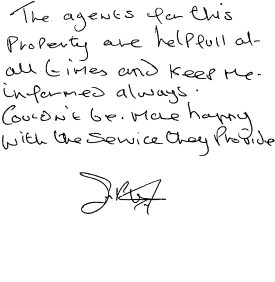 The agents for this
Property are helpfull at
all times and keep me
informed always.
Couldn't be. more happy
with the service they Provide